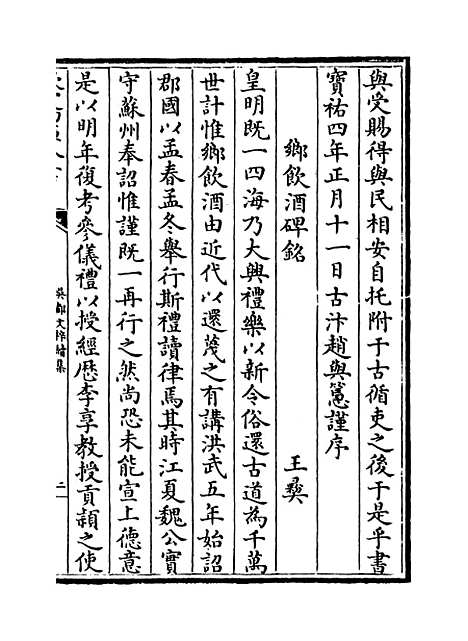 與受賜得與民相安自托附于古循吏之後于是乎書
寶祐四年正月十一日古汴趙與𥲅謹序
鄉飲酒碑銘
王彜
皇明既一四海乃大興禮樂以新令俗還古道為千萬
世計惟鄉飲酒由近代以還蔑之有講洪武五年始詔
郡國以孟春孟冬舉行斯禮讀律焉其時江夏魏公實
守蘇州奉詔惟謹既一再行之然尚恐未能宣上德意
是以明年復考參儀禮以授經歴李亨教授貢潁之使
吳都文粹續集
二